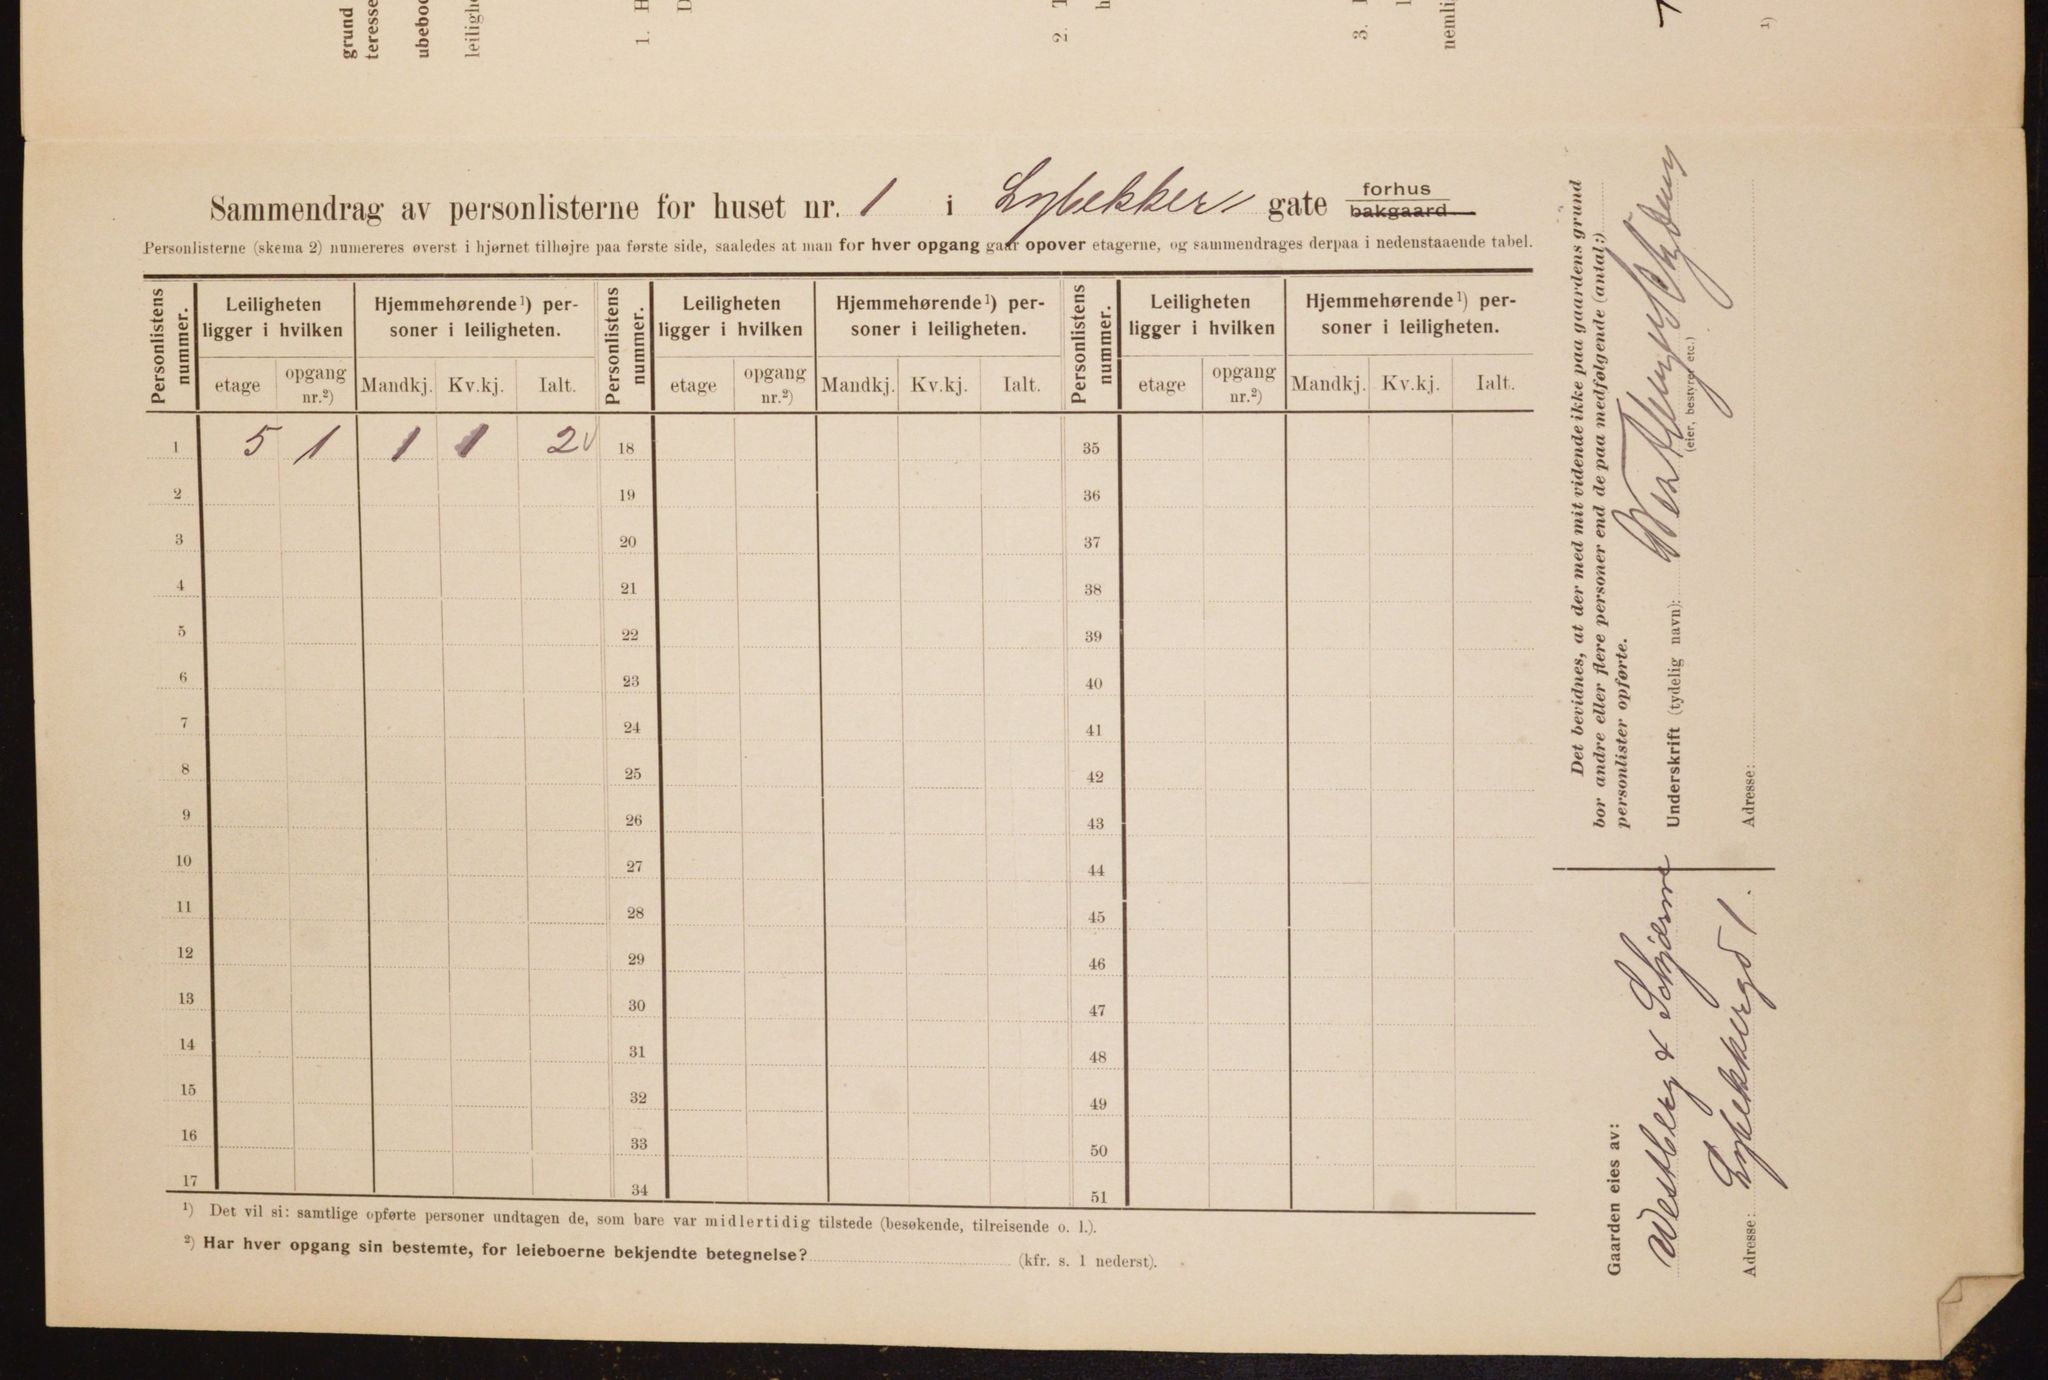 grund
teresse
ubeboe
leilighe
1. H
D
2. T
h
3.
nemlig
1)
Sammendrag av personlisterne for huset nr. 1 i Lybekker gate forhus bakgaard
Personlisterne (skema 2) numereres øverst i hjørnet tilhøjre paa første side, saaledes at man for hver opgang gaar opover etagerne, og sammendrages derpaa i nedenstaaende tabel.
Personlistens nummer. Leiligheten ligger i hvilken Hjemmehørende 1) personer i leiligheten. Personlistens nummer. Leiligheten ligger i hvilken Hjemmehørende 1) personer i leiligheten. Personlistens nummer. Leiligheten ligger i hvilken Hjemmehørende 1) personer i leiligheten.
etage opgang nr.2) Mandkj. Kv.kj. Ialt. etage opgang nr.2) Mandkj. Kv.kj. Ialt. etage opgang nr.2) Mandkj. Kv.kj. Ialt.
1 5 1 1 1 2 18 35
2 19 36
3 20 37
4 21 38
5 22 39
6 23 40
7 24 41
8 25 42
9 26 43
10 27 44
11 28 45
12 29 46
13 30 47
14 31 48
15 32 49
16 33 50
17 34 51
1) Det vil si: samtlige opførte personer undtagen de, som bare var midlertidig tilstede (besøkende, tilreisende o. l.).
2) Har hver opgang sin bestemte, for leieboerne bekjendte betegnelse? (kfr. s. 1 nederst).
Det bevidnes, at der med mit vidende ikke paa gaardens grund
bor andre eller flere personer end de paa medfølgende (antal:)
personlister opførte.
Underskrift (tydelig navn):
(eier, bestyrer etc.)
Adresse:
Gaarden eies av:
Westberg & Schjerne
Adresse: Lybekkergd 1.